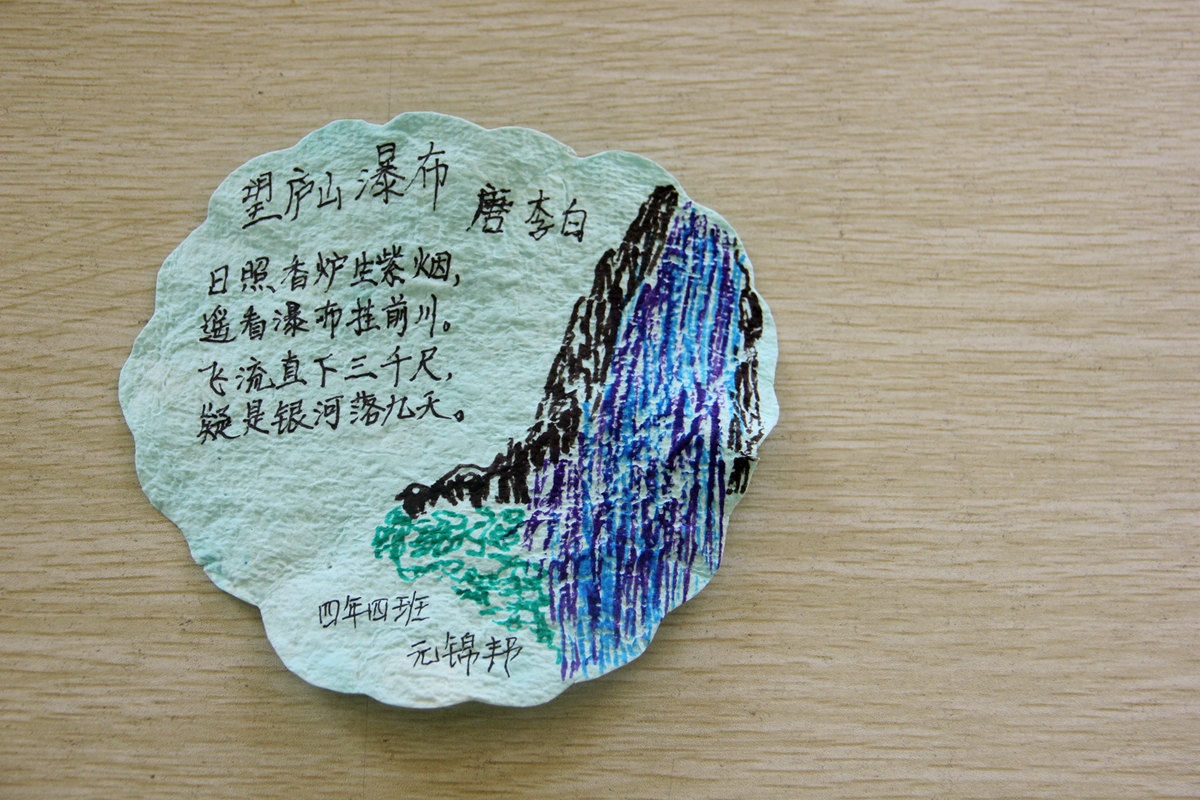 望庐山瀑布
唐 李白
日照香炉生紫烟，
遥看瀑布挂前川。
飞流直下三千尺，
疑是银河落九天。
四年四班
元锦邦